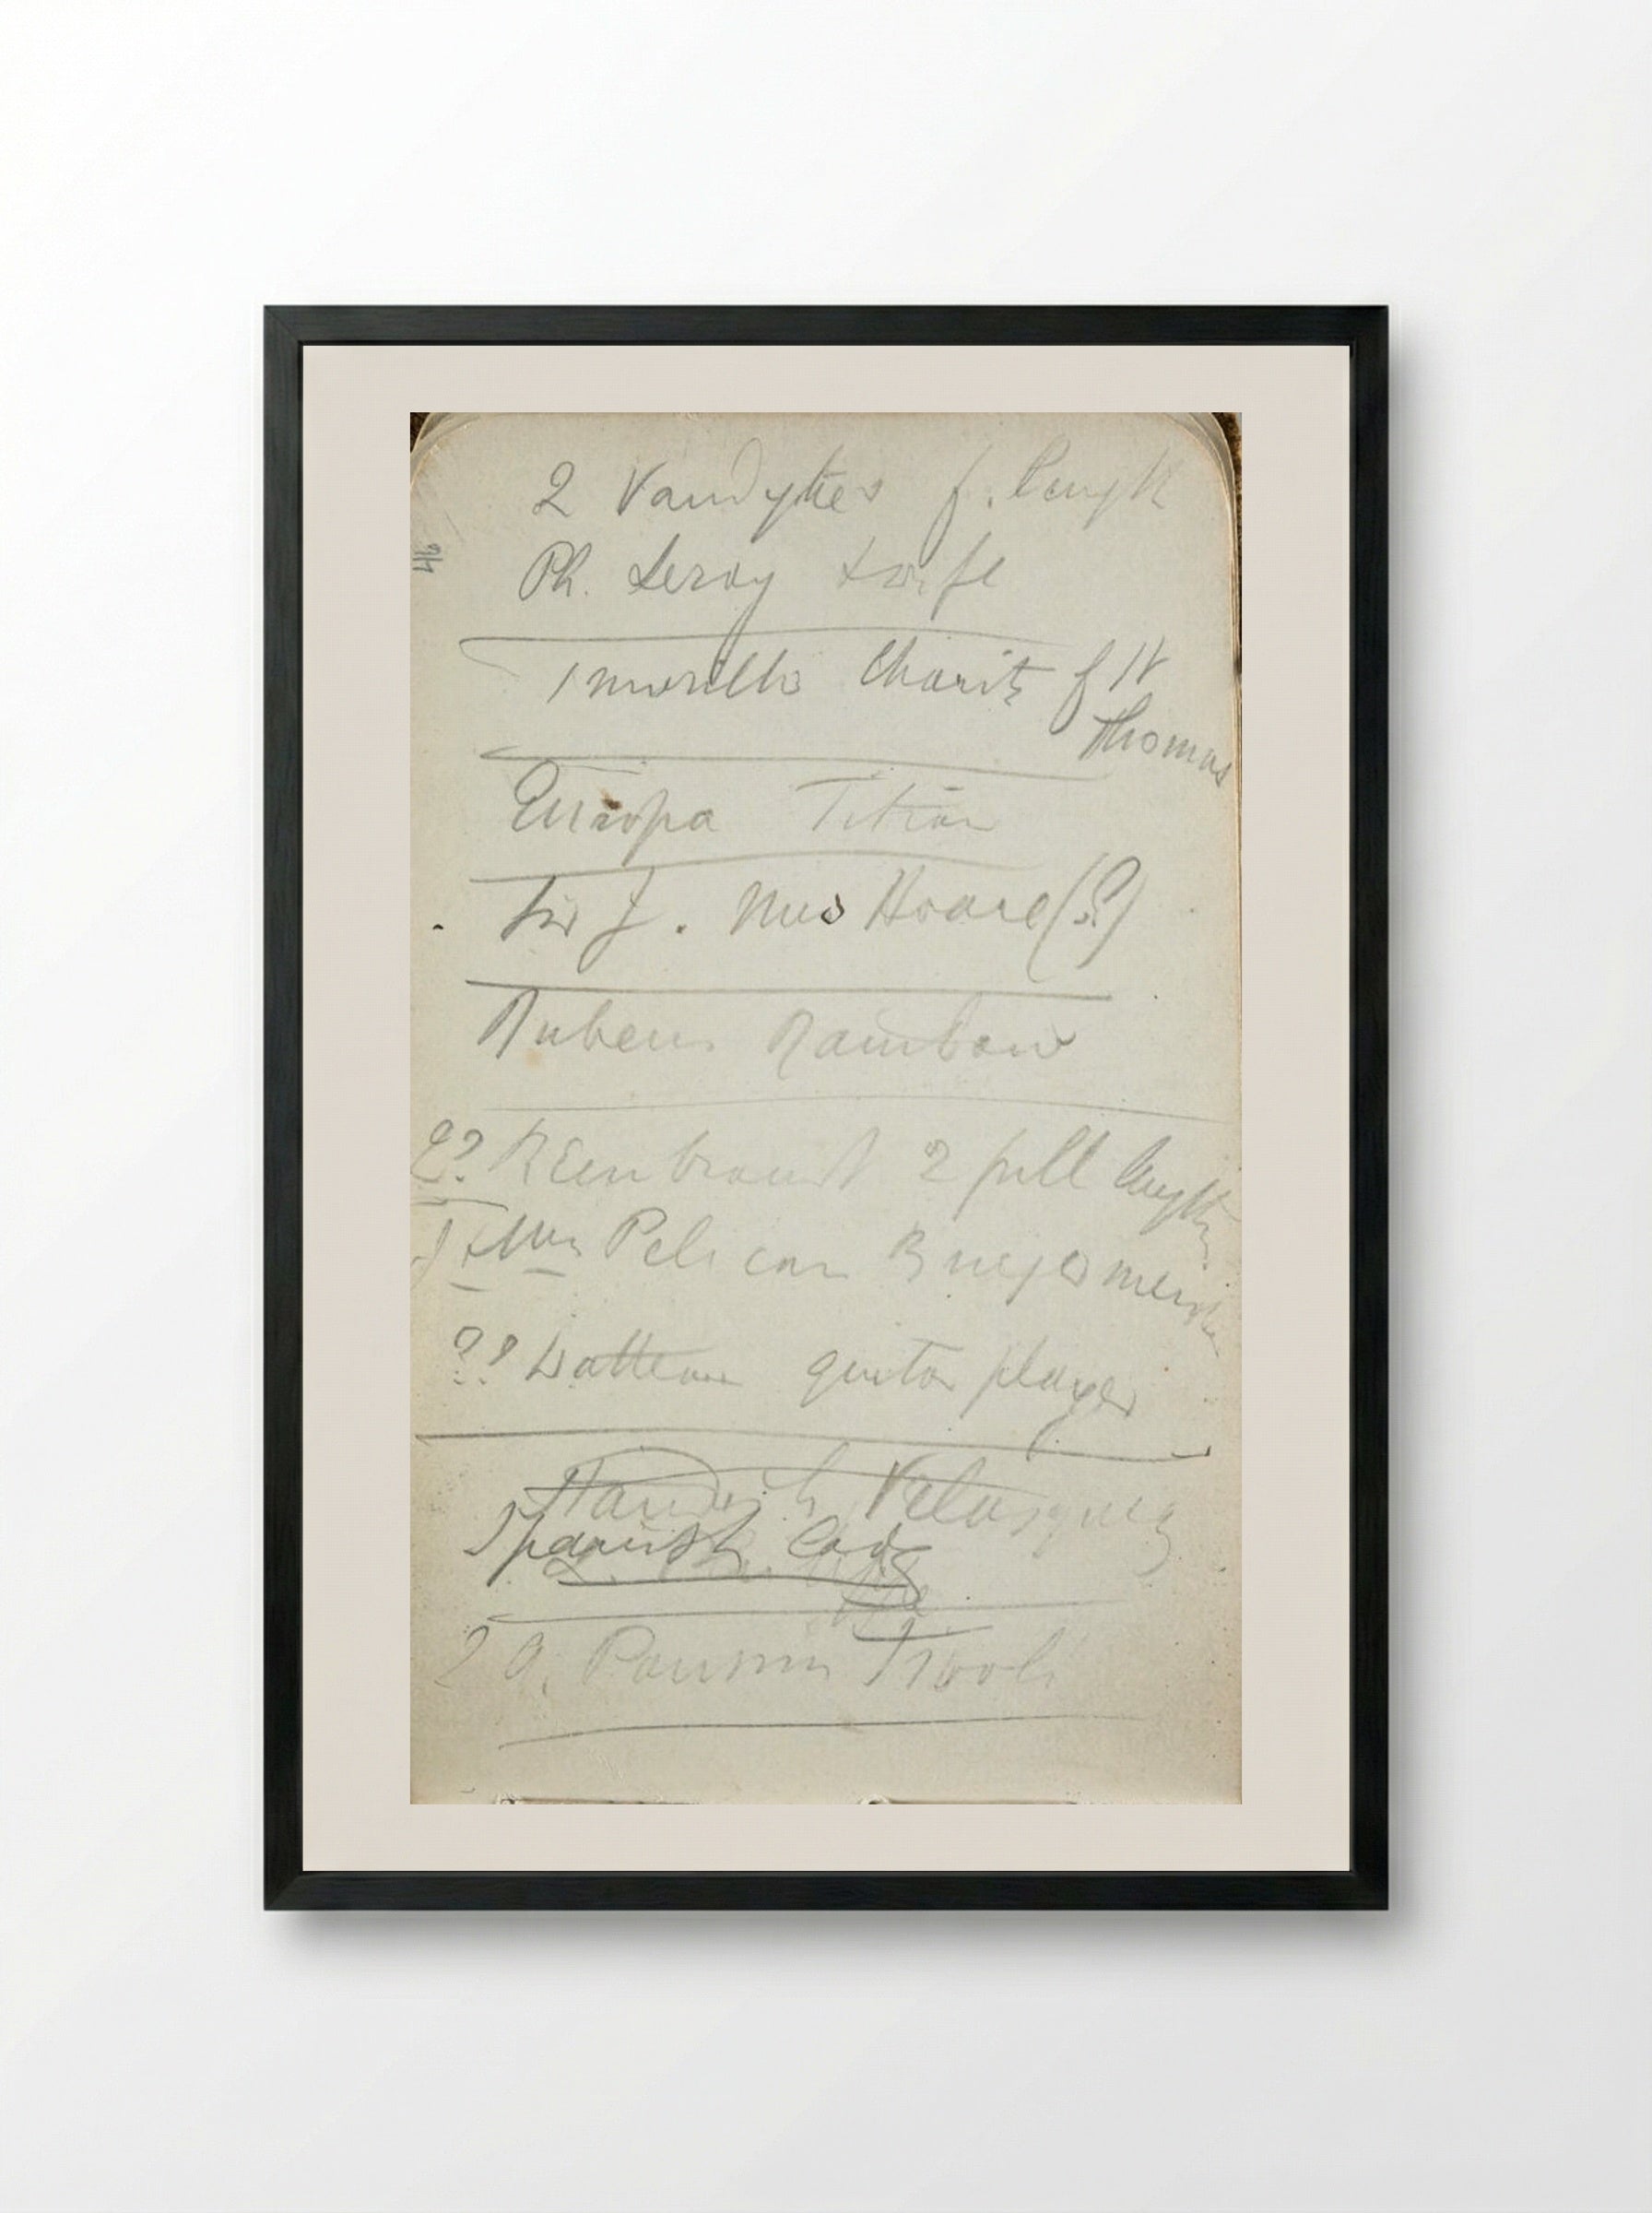 2 Vandykes f. length
Ph. Leroy & wife
1 murillo Charity of St
Thomas
Europa Titian
Sir J. Mrs Hoare (?)
Rubens Rainbow
2? Rembrandt 2 full lengths
J & Mrs Pelican Burgomeister
?? Watteau guitar player
Standish Velasquez
Spanish Lady
2 G. Poussin Tivoli